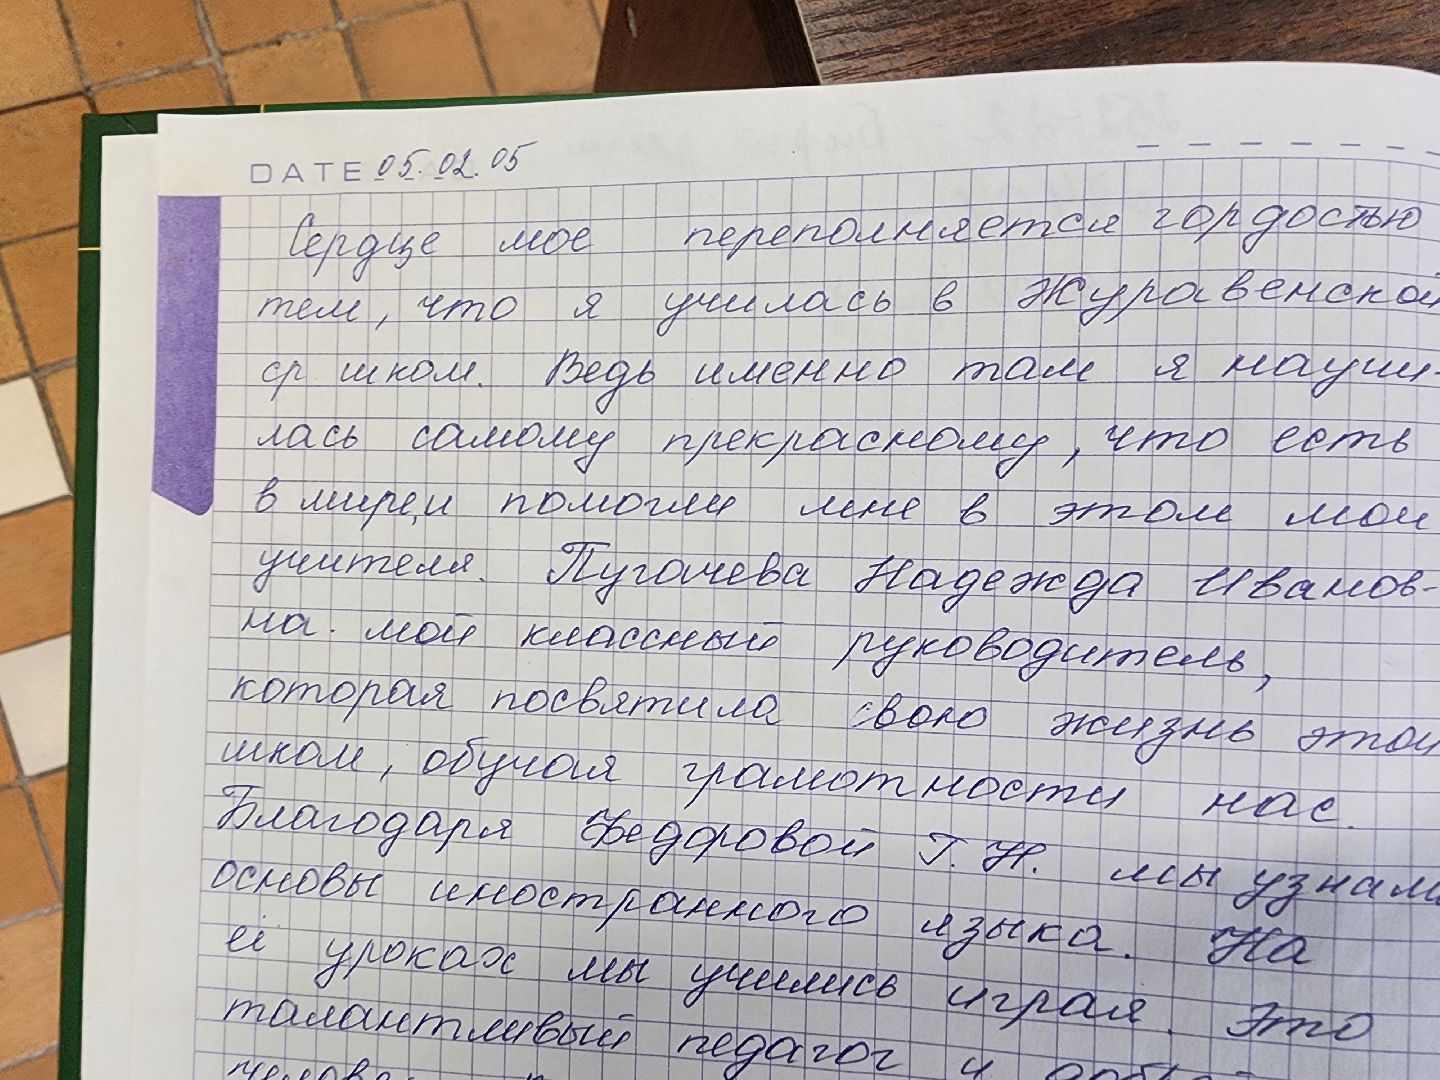 DATE 05.02.05
Сердце мое переполняется гордостью
тем, что я училась в Журавенской
ср школ. Ведь именно там я научи-
лась самому прекрасному, что есть
в мире,и помогли мне в этом мои
учителя. Пугачева Надежда Иванов-
на. мой классный руководитель,
которая посвятила свою жизнь этой
школ, обучая грамотности нас.
Благодаря Федоровой Г. Н. мы узнали
основы иностранного языка. На
её уроках мы учились играя. Это
талантливый педагог и